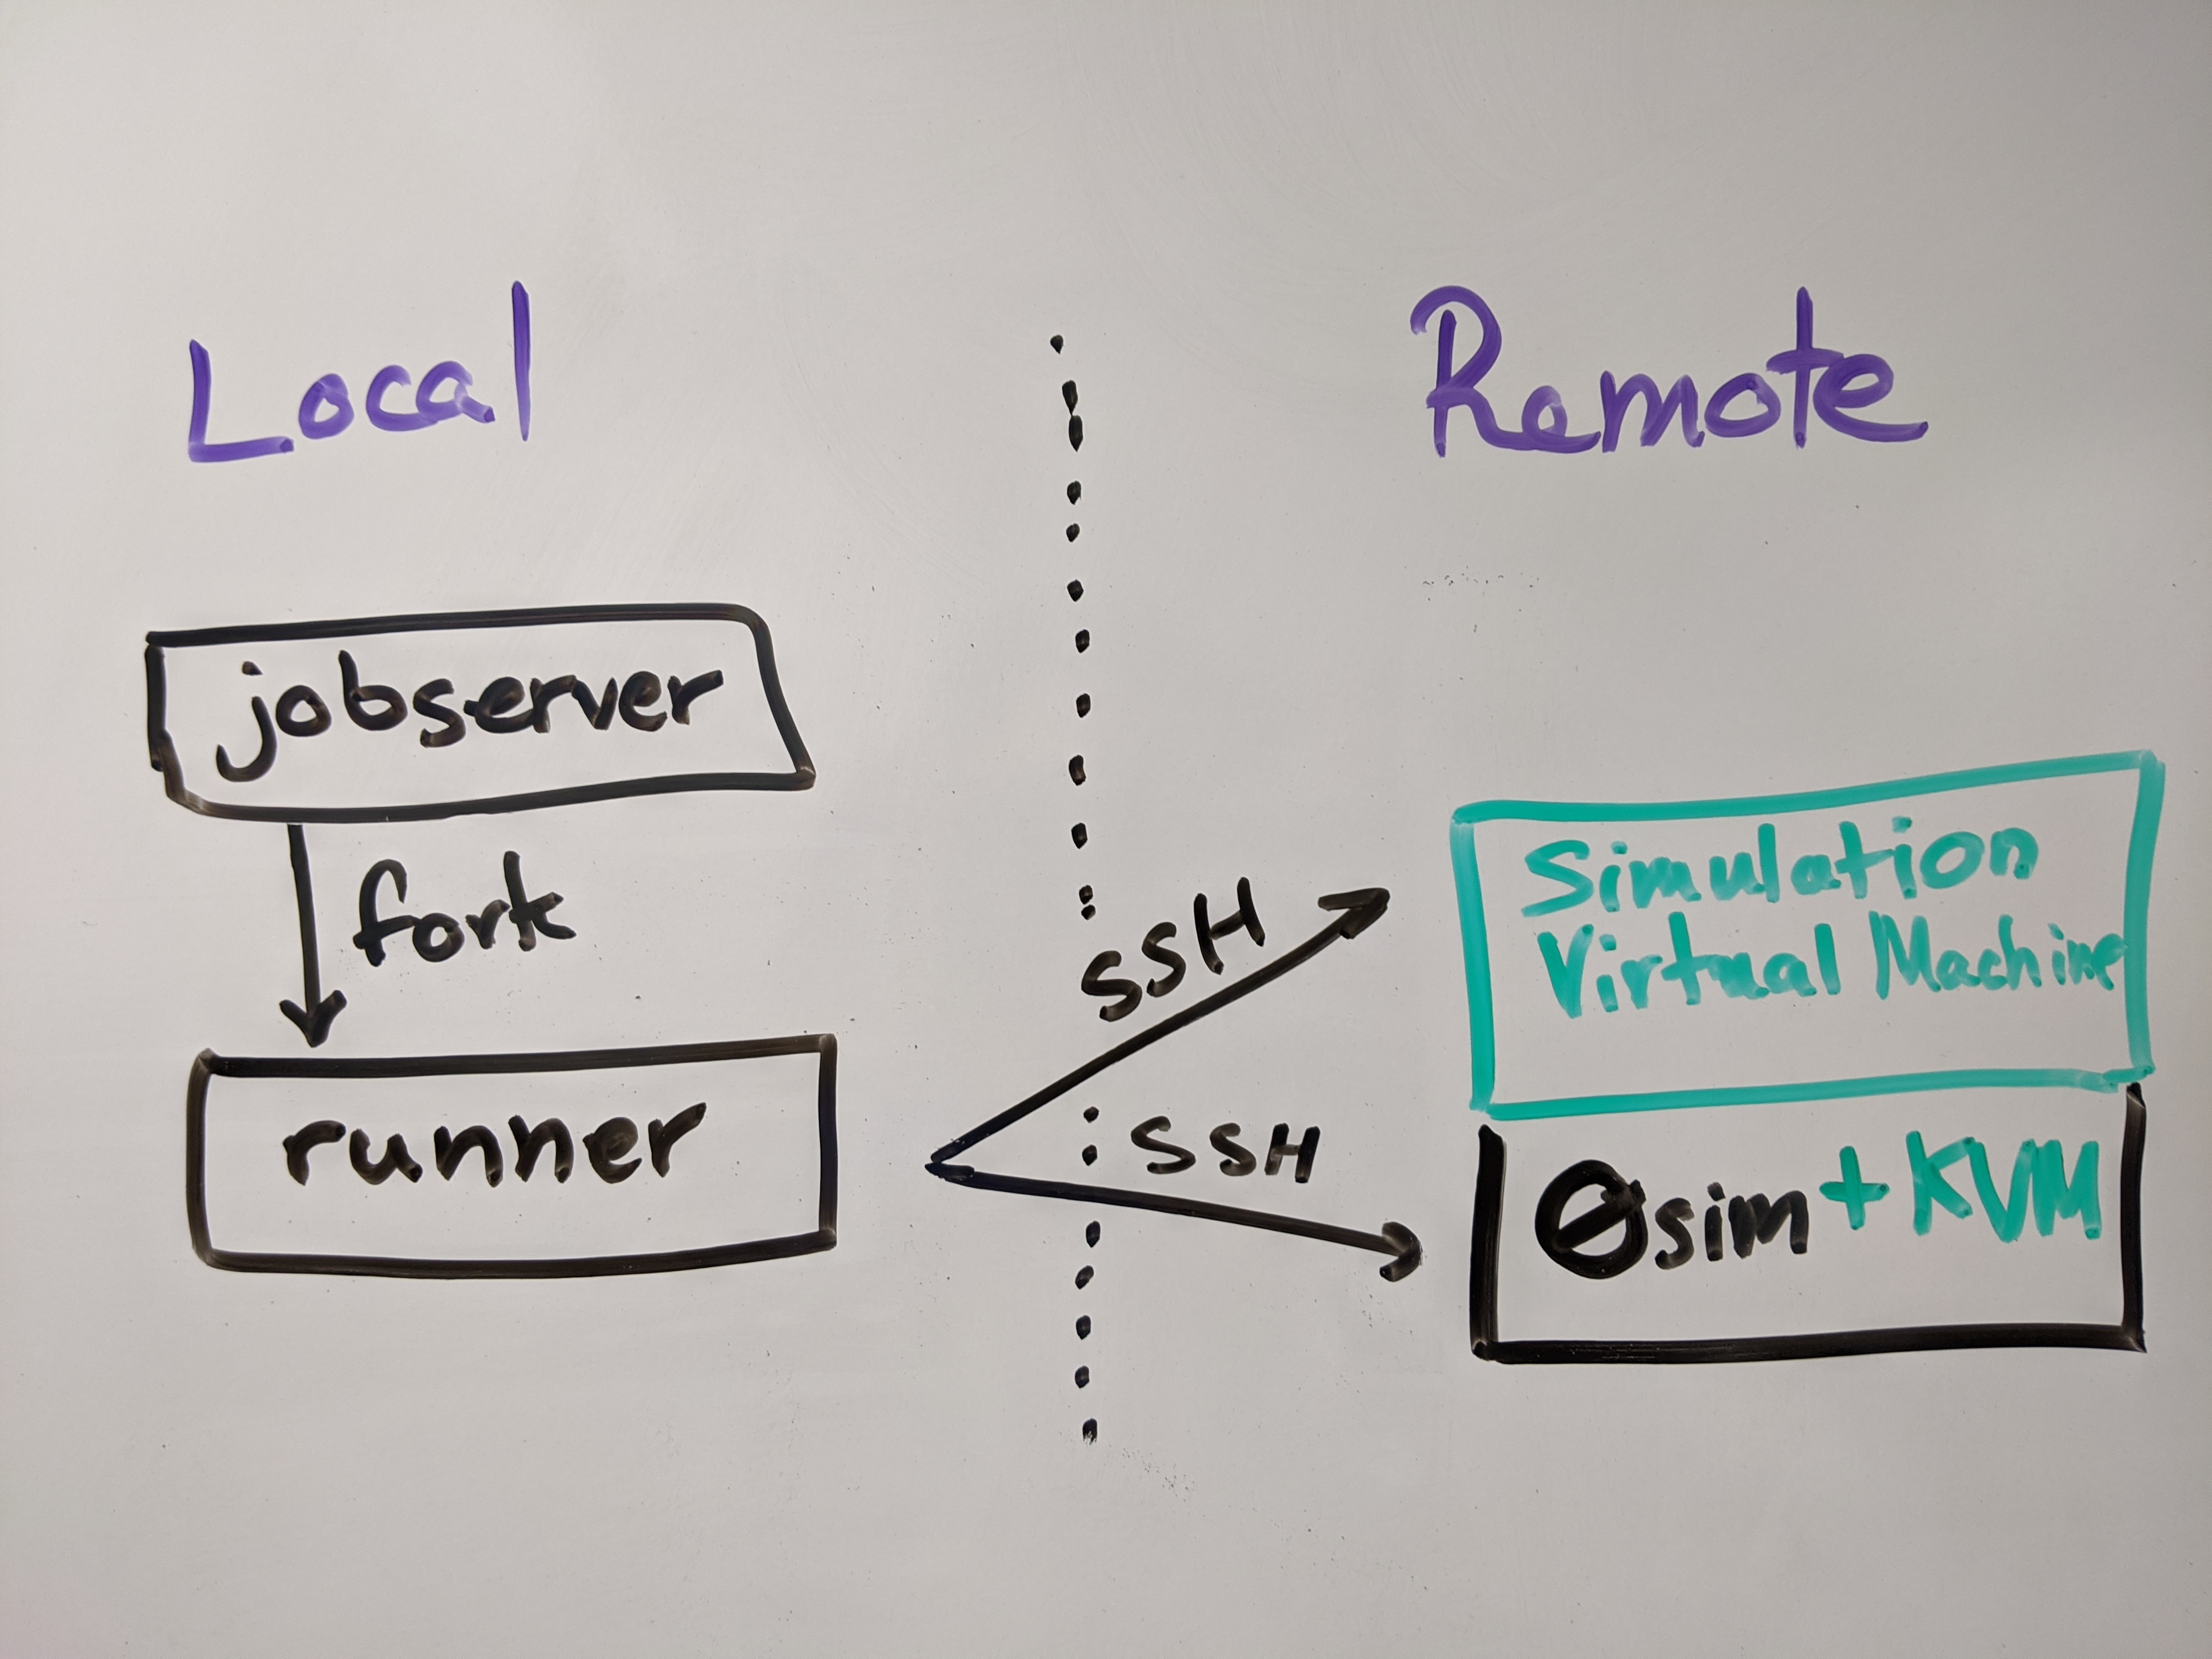 Local
Remote
jobserver
fork
runner
SSH
SSH
Simulation
Virtual Machine
0sim + KVM